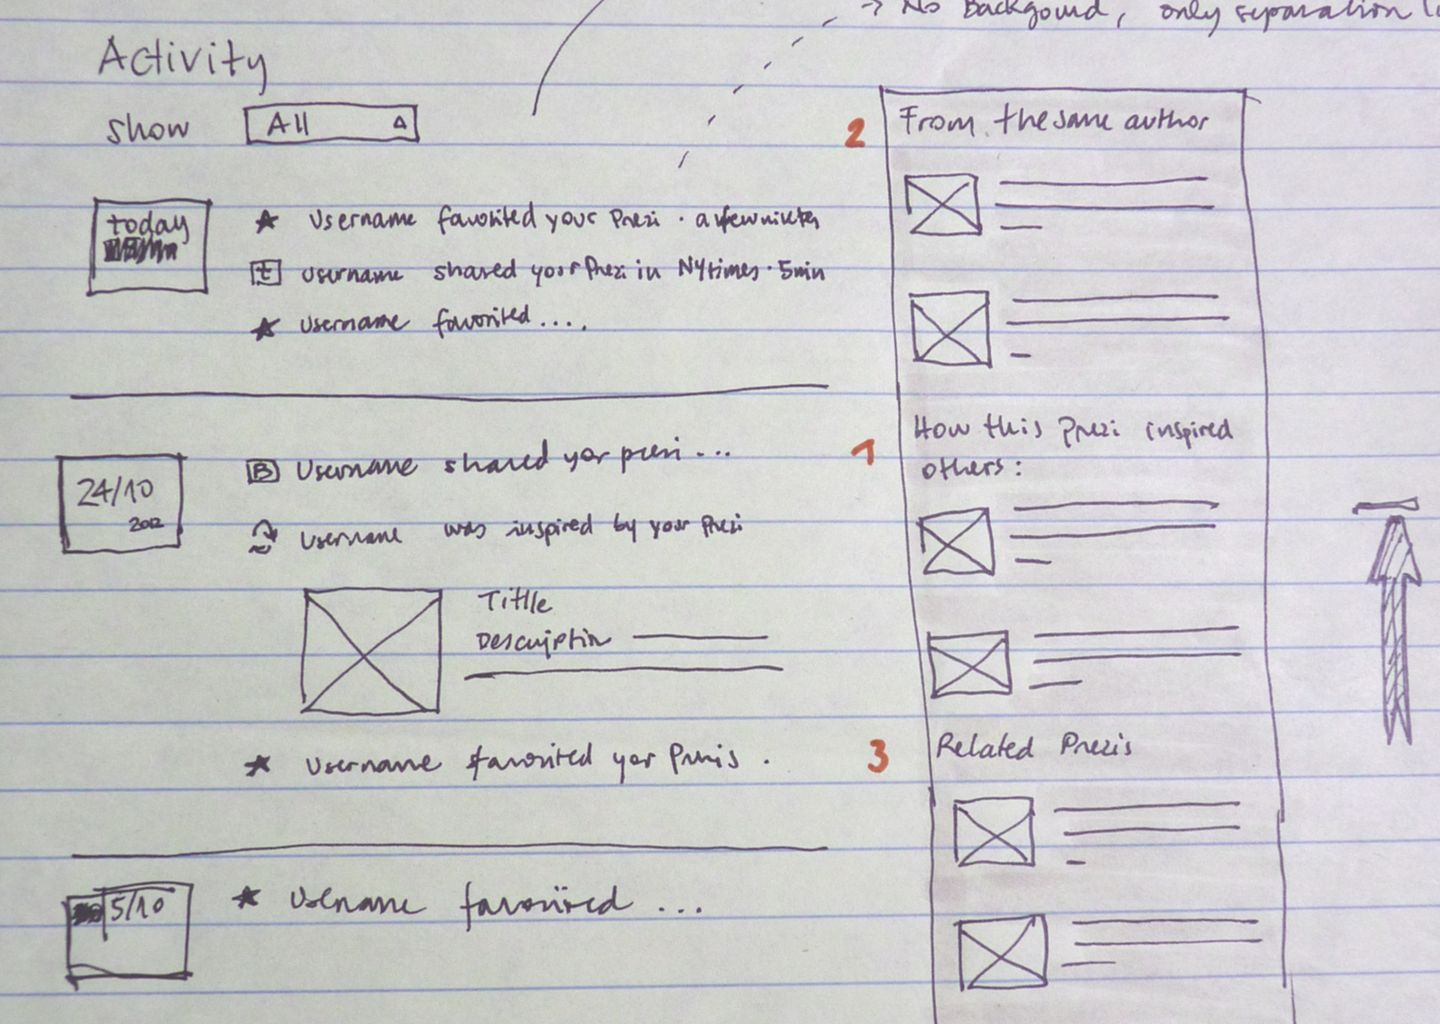 → No Backgound, only separation
Activity
show All
today
★ Username favorited your Prezi · a few minutes
t username shared your Prezi in NYtimes · 5min
★ username favorited....
24/10
2012
B Username shared yor prezi ...
username was inspired by your Prezi
Titlle
Description
★ Username favorited yor Prezis .
5/10
★ Username favorited ...
2 From the same author
1 How this Prezi inspired
others:
3 Related Prezis